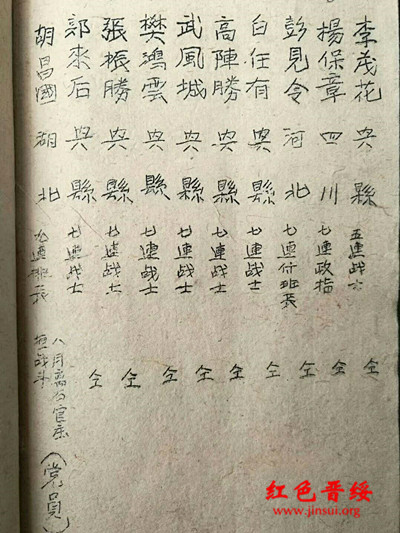 李茂花 兴縣 五連战士 仝
揚保章 四川 七連政指 仝
彭見令 河北 七連付班长 仝
白任有 兴縣 七連战士 仝
高陣勝 兴縣 七連战士 仝
武風城 兴縣 七連战士 仝
樊鴻雲 兴縣 七連战士 仝
張振勝 兴縣 七連战士 仝
郭来后 兴縣 七連战士 仝
胡昌國 湖北 九連排长 八月离石官庄
垣战斗 (党員)
红色晋绥
www.jinsui.org